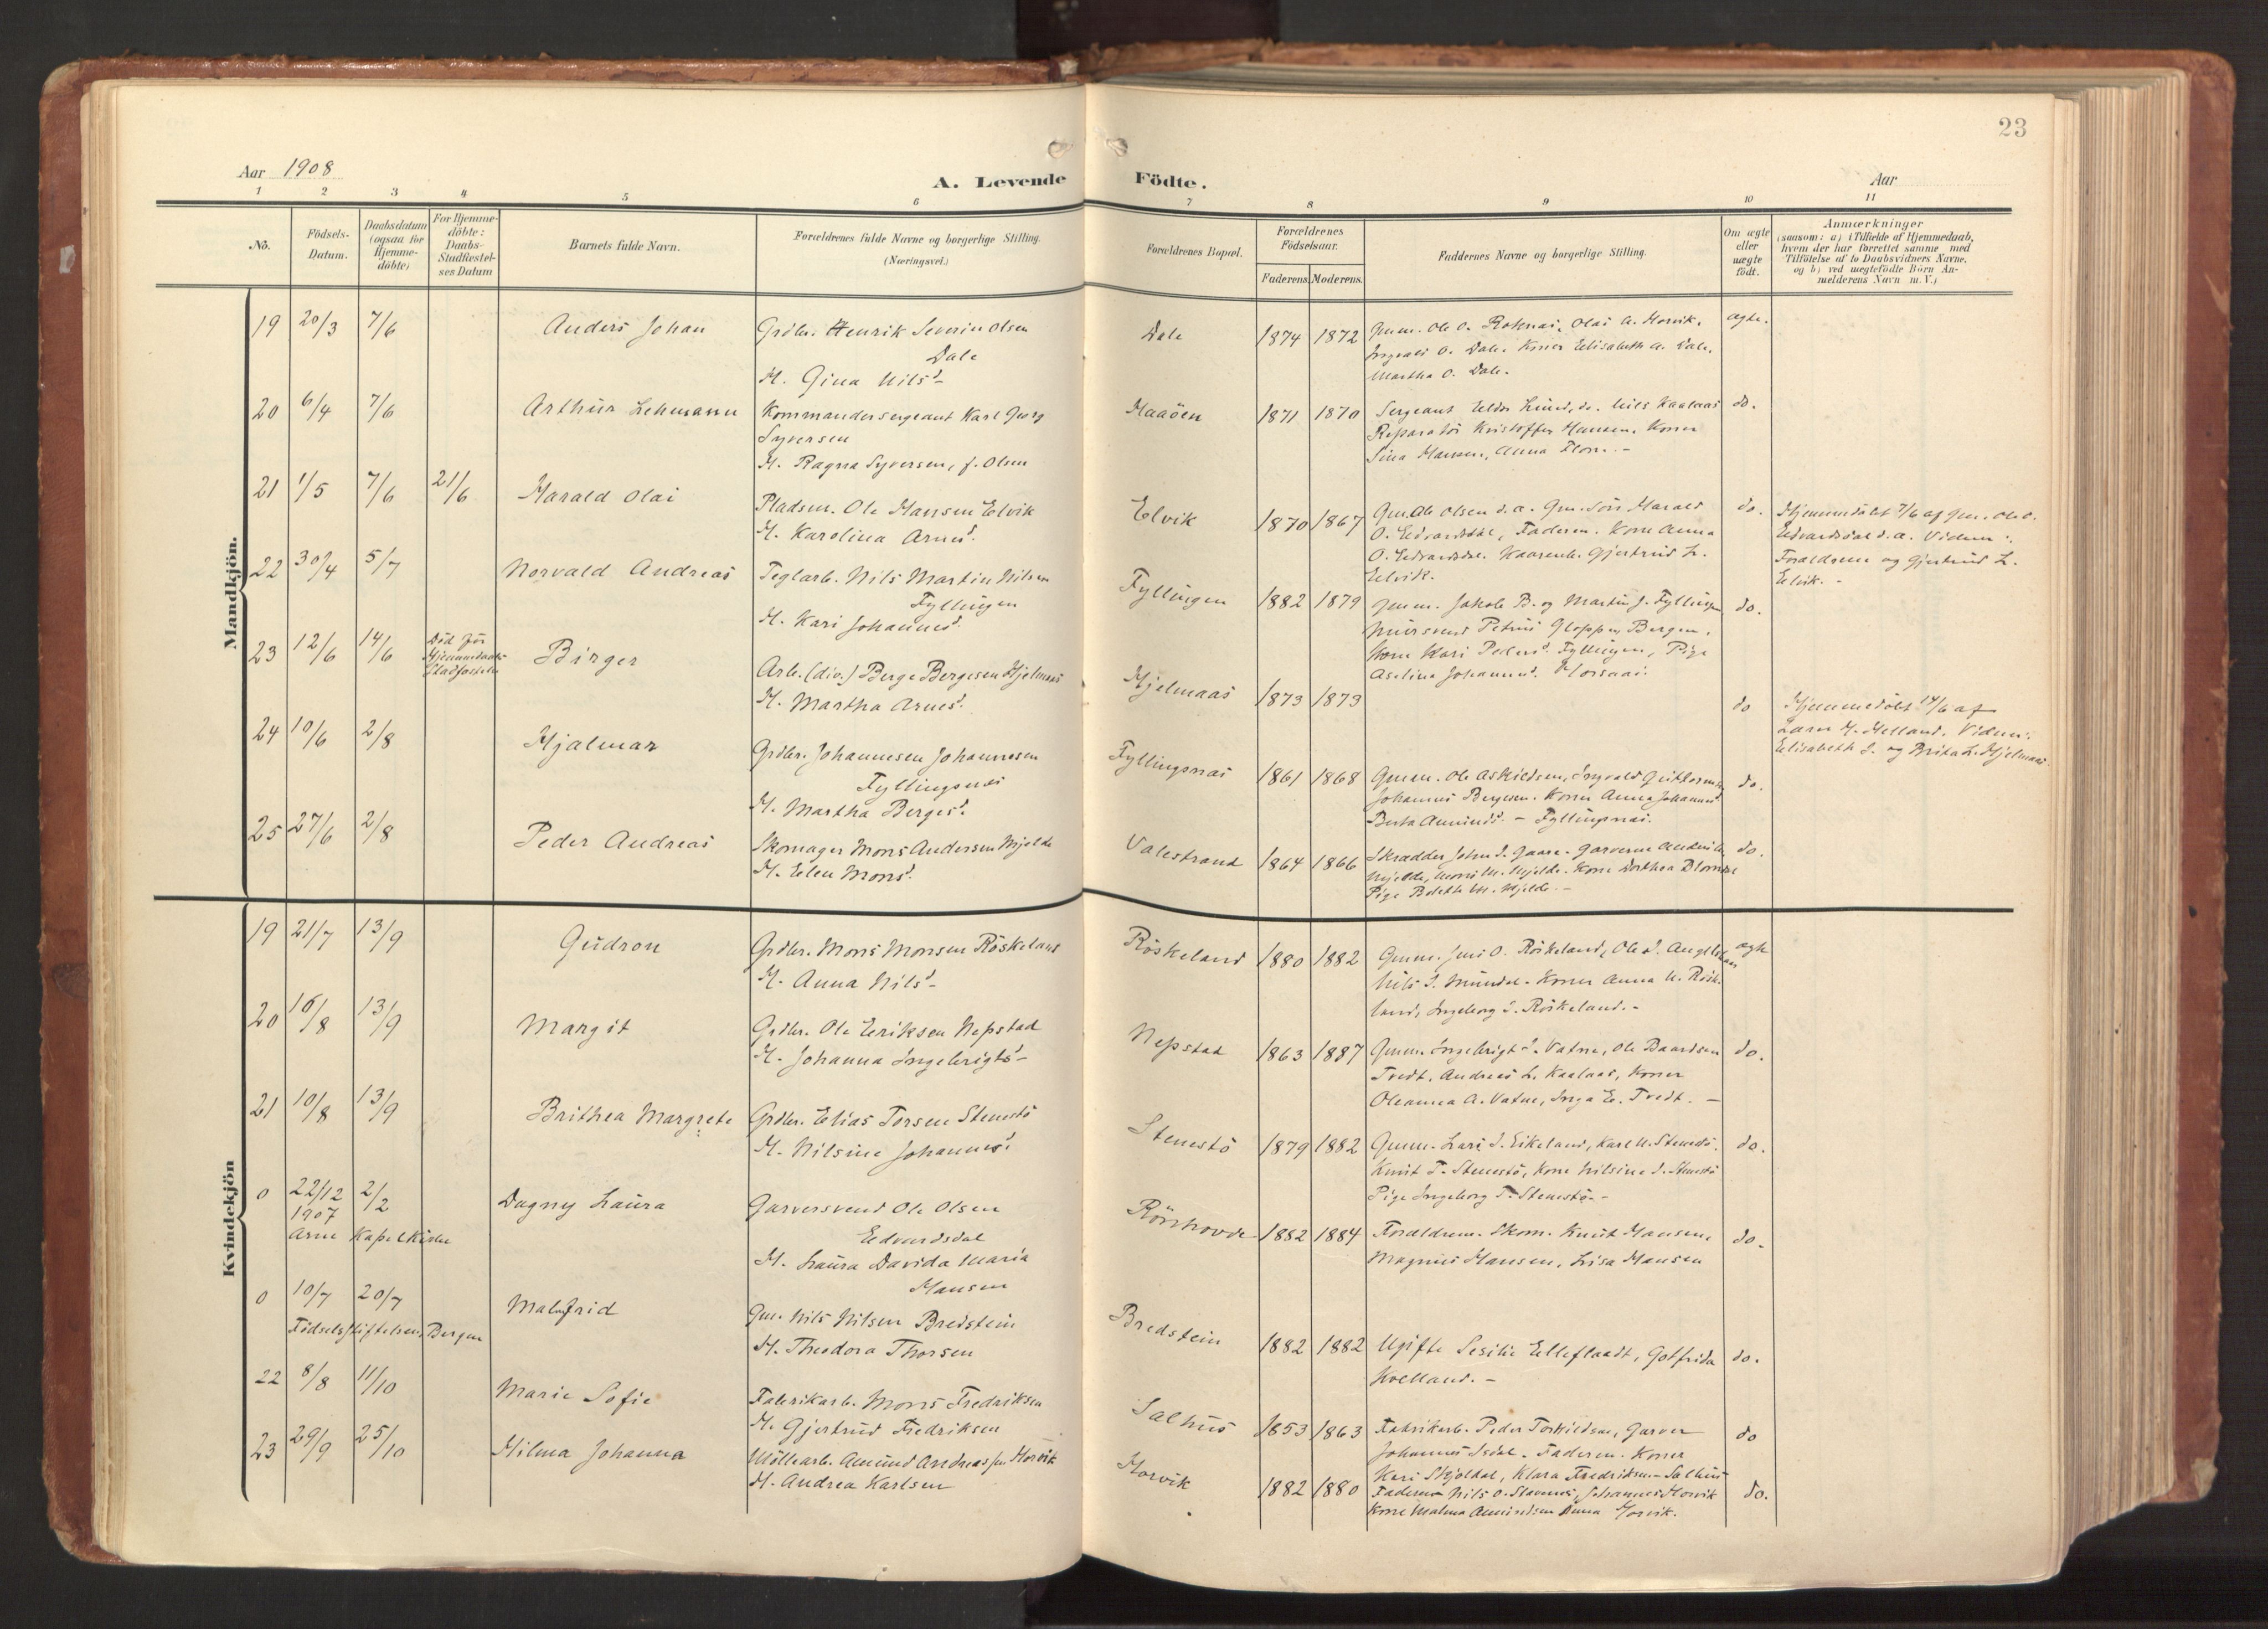 23
Aar 1908
A. Levende Födte.
Aar
1 2 3 4 5 6 7 8 9 10 11
No.
Födsels-Datum.
Daabsdatum (ogsaa for Hjemme-döbte)
For Hjemme-döbte: Daabs-Stadfæstel-ses Datum
Barnets fulde Navn.
Forældrenes fulde Navne og borgerlige Stilling. (Næringsvei.)
Forældrenes Bopæl.
Forældrenes Födselsaar.
Faderens. Moderens.
Faddernes Navne og borgerlige Stilling.
Om ægte eller uægte födt.
Anmærkninger
(saasom: a) i Tilfælde af Hjemmedaab,
hvem der har forrettet samme med
Tilföielse af to Daabsvidners Navne.
og b) ved uægtefödte Börn An-
melderens Navn m.V.)
Mandkjön.
19 20/3 7/6 Anders Johan Grdbr. Henrik Severin Olsen
Dale
H. Gina Nilsd.
Dale 1874 1872 Gmm. Ole O. Roknæs, Olai A. Horvik.
Ingvald O. Dale. Koner Elisabeth A. Dale,
Martha O. Dale.
ægte.
20 6/4 7/6 Arthur Lehmann Kommandersergeant Karl Georg
Syversen
H. Ragna Syversen, f. Olsen
Haaöen 1871 1870 Sergeant Lund, do. Nils Kaalaas
Reparatör Kristoffer Hansen. Koner
Sina Hansen, Anna
do.
21 1/5 7/6 21/6 Harald Olai Pladsm. Ole Hansen Elvik
H. Karolina Arnesd.
Elvik 1870 1867 Gm. Ole Olsen d.a. Gm. Sön Harald
O. Edvardsdal, Faderen. Kone Anna
O. Edvardsdal. Gjertrud L.
Elvik.
do. Hjemmedöbt 7/6 af Gm. Ole O.
Edvardsdal d.a. Vidner:
Forældrene og Gjertrud L.
Elvik. -
22 30/4 5/7 Norvald Andreas Teglarb. Nils Martin Nilsen
Fyllingen
H. Kari Johannesd.
Fyllingen 1882 1879 Gmm. Jakob B. og Martin J. Fyllingen
Mursvend Petrus Gloppen, Bergen.
Kone Kari Pedersd. Fyllingen, Pige
Aselina Johannesd.
do.
23 12/6 14/6 Död för
Hjemmedaabs
Stadfæstelse
Birger Arb. (div.) Berge Bergesen Hjelmaas
H. Martha Arnesd.
Hjelmaas 1873 1873 do Hjemmedöbt 14/6 af
Lærer H. Helland. Vidner:
Elisabeth J. og Brita L. Hjelmaas.
24 10/6 2/8 Hjalmar Grdbr. Johannesen Johannesen
Fyllingsnæs
H. Martha Bergesd.
Fyllingsnæs 1861 1868 Gmm. Ole Askildsen, Ingvald Guttormsen
Johannes Bergesen. Koner Anna Johannesd.
Berta Amundsd. - Fyllingsnæs.
do.
25 27/6 2/8 Peder Andreas Skomager Mons Andersen Mjelde
H. Elen Monsd.
Valestrand 1864 1866 Skrædder John J. Gaare. Garverne
Mjelde, Mons M. Mjelde. Kone Dorthea
Pige Bolette M. Mjelde. -
do.
Kvindekjön
19 21/7 13/9 Gudron Grdbr. Mons Monsen Röskeland
H. Anna Nilsd.
Röskeland 1880 1882 Gmm. Jens O. Röskeland, Ole J.
Nils J. Mundal. Koner Anna N. Röske-
land, Ingeborg J. Röskeland. -
ægte
20 16/8 13/9 Margit Grdbr. Ole Eriksen Nepstad
H. Johanna Ingebrigtsd.
Nepstad 1863 1887 Gmm. Ingebrigt J. Vatne, Ole Baardsen
Tvedt, Andreas L. Kaalaas, Koner
Oleanna A. Vatne, Inga E. Tvedt. -
do.
21 10/8 13/9 Brithea Margrete Grdbr. Elias Torsen Stenestö
H. Nilsine Johannesd.
Stenestö 1879 1882 Gmm. Lars J. Eikeland, Karl N. Stenestö.
Knut T. Stenestö, Kone Nilsine J. Stenestö
Pige Ingeborg T. Stenestö. -
do.
0 22/12 1907 2/2 Dagny Laura Garversvend Ole Olsen
Edvardsdal
H. Laura Davida Maria
Hansen
Arne Kapelkirke
1882 1884 Forældrene. Skom. Knut Hansen,
Magnus Hansen, Lisa Hansen
do.
0 10/7 20/7 Malmfrid Gm. Nils Nilsen Bredstein
H. Theodora Thorsen
Födselsstiftelsen, Bergen
Bredstein 1882 1882 Ugifte Sesilie Elleflaadt, Gotfrida
Hvelland. -
do.
22 8/8 11/10 Marie Sofie Fabrikarb. Mons Fredriksen
H. Gjertrud Fredriksen
Salhus 1853 1863 Fabrikarb. Peder Torkildsen, Garver
Johannes Isdal. Faderen. Koner
Kari Skjoldal, Klara Fredriksen - Salhus
do
23 29/9 25/10 Hilma Johanna Möllearb. Amund Andreassen Horvik
H. Andrea Karlsen
Horvik 1882 1880 Faderen Nils O. Johannes Horvik
Kone Malena Amundsen Anna Horvik.
do.